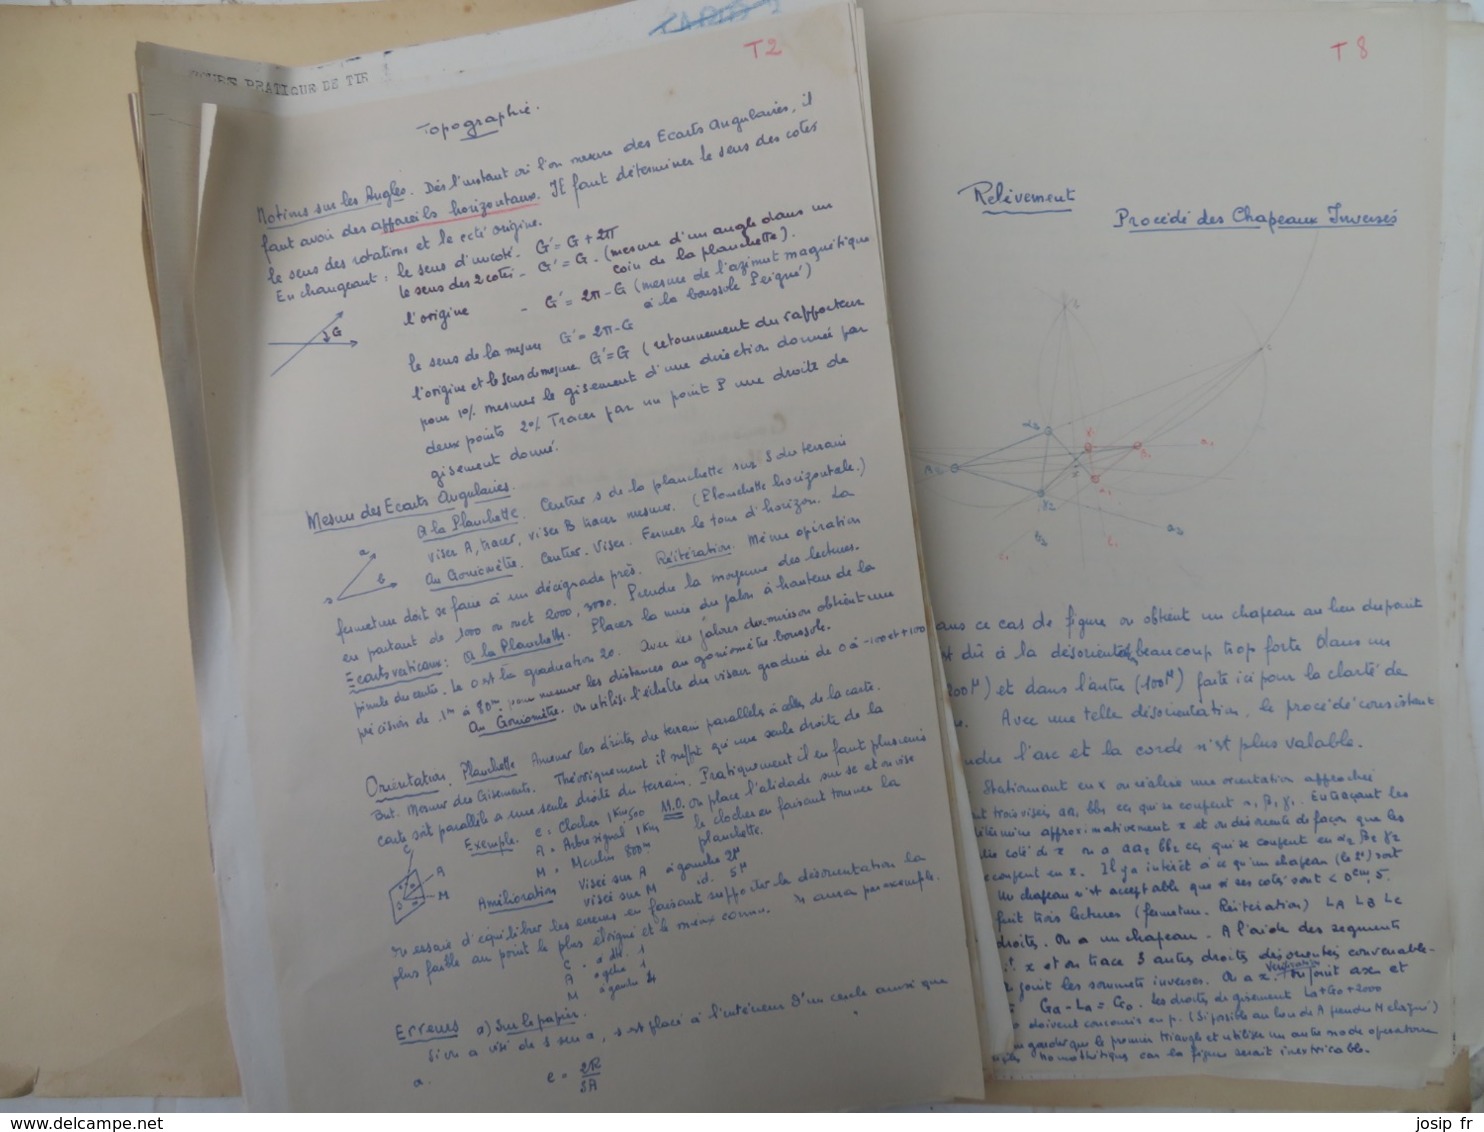 COURS PRATIQUE DE TIR
T2
Topographie.
Notions sur les Angles. Dès l'instant où l'on mesure des Ecarts Angulaires, il
faut avoir des appareils horizontaux. Il faut déterminer le sens des cotes
le sens des rotations et le coté origine.
En changeant : le sens d'un coté - G' = G + 2π
le sens des 2 cotés - G' = G - (mesure d'un angle dans un
coin de la planchette).
l'origine - G' = 2π - G (mesure de l'azimut magnétique
à la boussole Peigné)
le sens de la mesure G' = 2π - G
l'origine et le sens de mesure G' = G (retournement du rapporteur
pour 1°/ mesurer le gisement d'une direction donnée par
deux points 2°/ Tracer par un point P une droite de
gisement donné.
G
Mesure des Ecarts Angulaires.
A la Planchette. Centrer s de la planchette sur S du terrain
viser A, tracer, viser B tracer mesurer. (Planchette horizontale.)
Au Goniomètre. Centrer. Viser. Fermer le tour d'horizon. La
fermeture doit se faire à un décigrade près. Réitération. Même opération
en partant de 1000 ou met 2000, 3000. Prendre la moyenne des lectures.
Ecarts verticaux : A la Planchette. Placer la mire du jalon à hauteur de la
pinnule du centre. Le 0 est la graduation 20. Avec les jalons du
précision de 1m à 80m pour mesurer les distances au goniomètre-boussole.
Au Goniomètre. on utilise l'échelle du viseur graduée de 0 à -100 et +100
a
b
s
Orientation. Planchette Amener les droites du terrain parallèles à celles de la carte.
But. Mesurer des Gisements. Théoriquement il suffit qu'une seule droite de la
carte soit parallèle à une seule droite du terrain. Pratiquement il en faut plusieurs
Exemple. C = Clocher 1 Km 500 M.O. on place l'alidade sur sc et on vise
A = Arbre signal 1 Km le clocher en faisant tourner la
M = Moulin 800m planchette.
C
A
M
Amélioration Visée sur A à gauche 2µ
Visée sur M id. 5µ
on essaie d'équilibrer les erreurs en faisant supporter la désorientation la
plus faible au point le plus éloigné et le mieux connu. On aura par exemple.
C
A à gche 1
M à gauche
Erreurs a) Sur le papier.
Si on a visé de s sur a, s est placé à l'intérieur d'un cercle ainsi que
a.
e = 2R / SA
T 8
Relèvement
Procédé des Chapeaux Inversés
ans ce cas de figure on obtient un chapeau au lieu du point
st dû à la désorientation beaucoup trop forte dans un
200µ) et dans l'autre (100µ) faite ici pour la clarté de
Avec une telle désorientation, le procédé consistant
ndre l'arc et la corde n'est plus valable.
Stationnant en x on réalise une orientation approchée
nt trois visées aa, bb, cc, qui se coupent α, β, γ. En traçant les
étermine approximativement x et on désoriente de façon que les
coté de x on a aa2 bb2 cc2 qui se coupent en α2 β2 γ2
coupent en x. Il y a intérêt à ce qu'un chapeau (le 2e) soit
Un chapeau n'est acceptable que si ses cotés sont < 0cm,5.
fait trois lectures (fermeture. Réitération) LA LB LC
droites. On a un chapeau - A l'aide des segments
x et on trace 3 autres droites désorientées convenable-
joint les sommets inverses. On a x. Vérification on joint ax et
GA - LA = G0. les droites de gisement LA + G0 + 2000
doivent concourir en p. (Si possible au lieu de A prendre M éloigné)
garder que le premier triangle et utiliser un autre mode opératoire
homothétiques car la figure serait inextricable.
www.delcampe.net
josip_fr